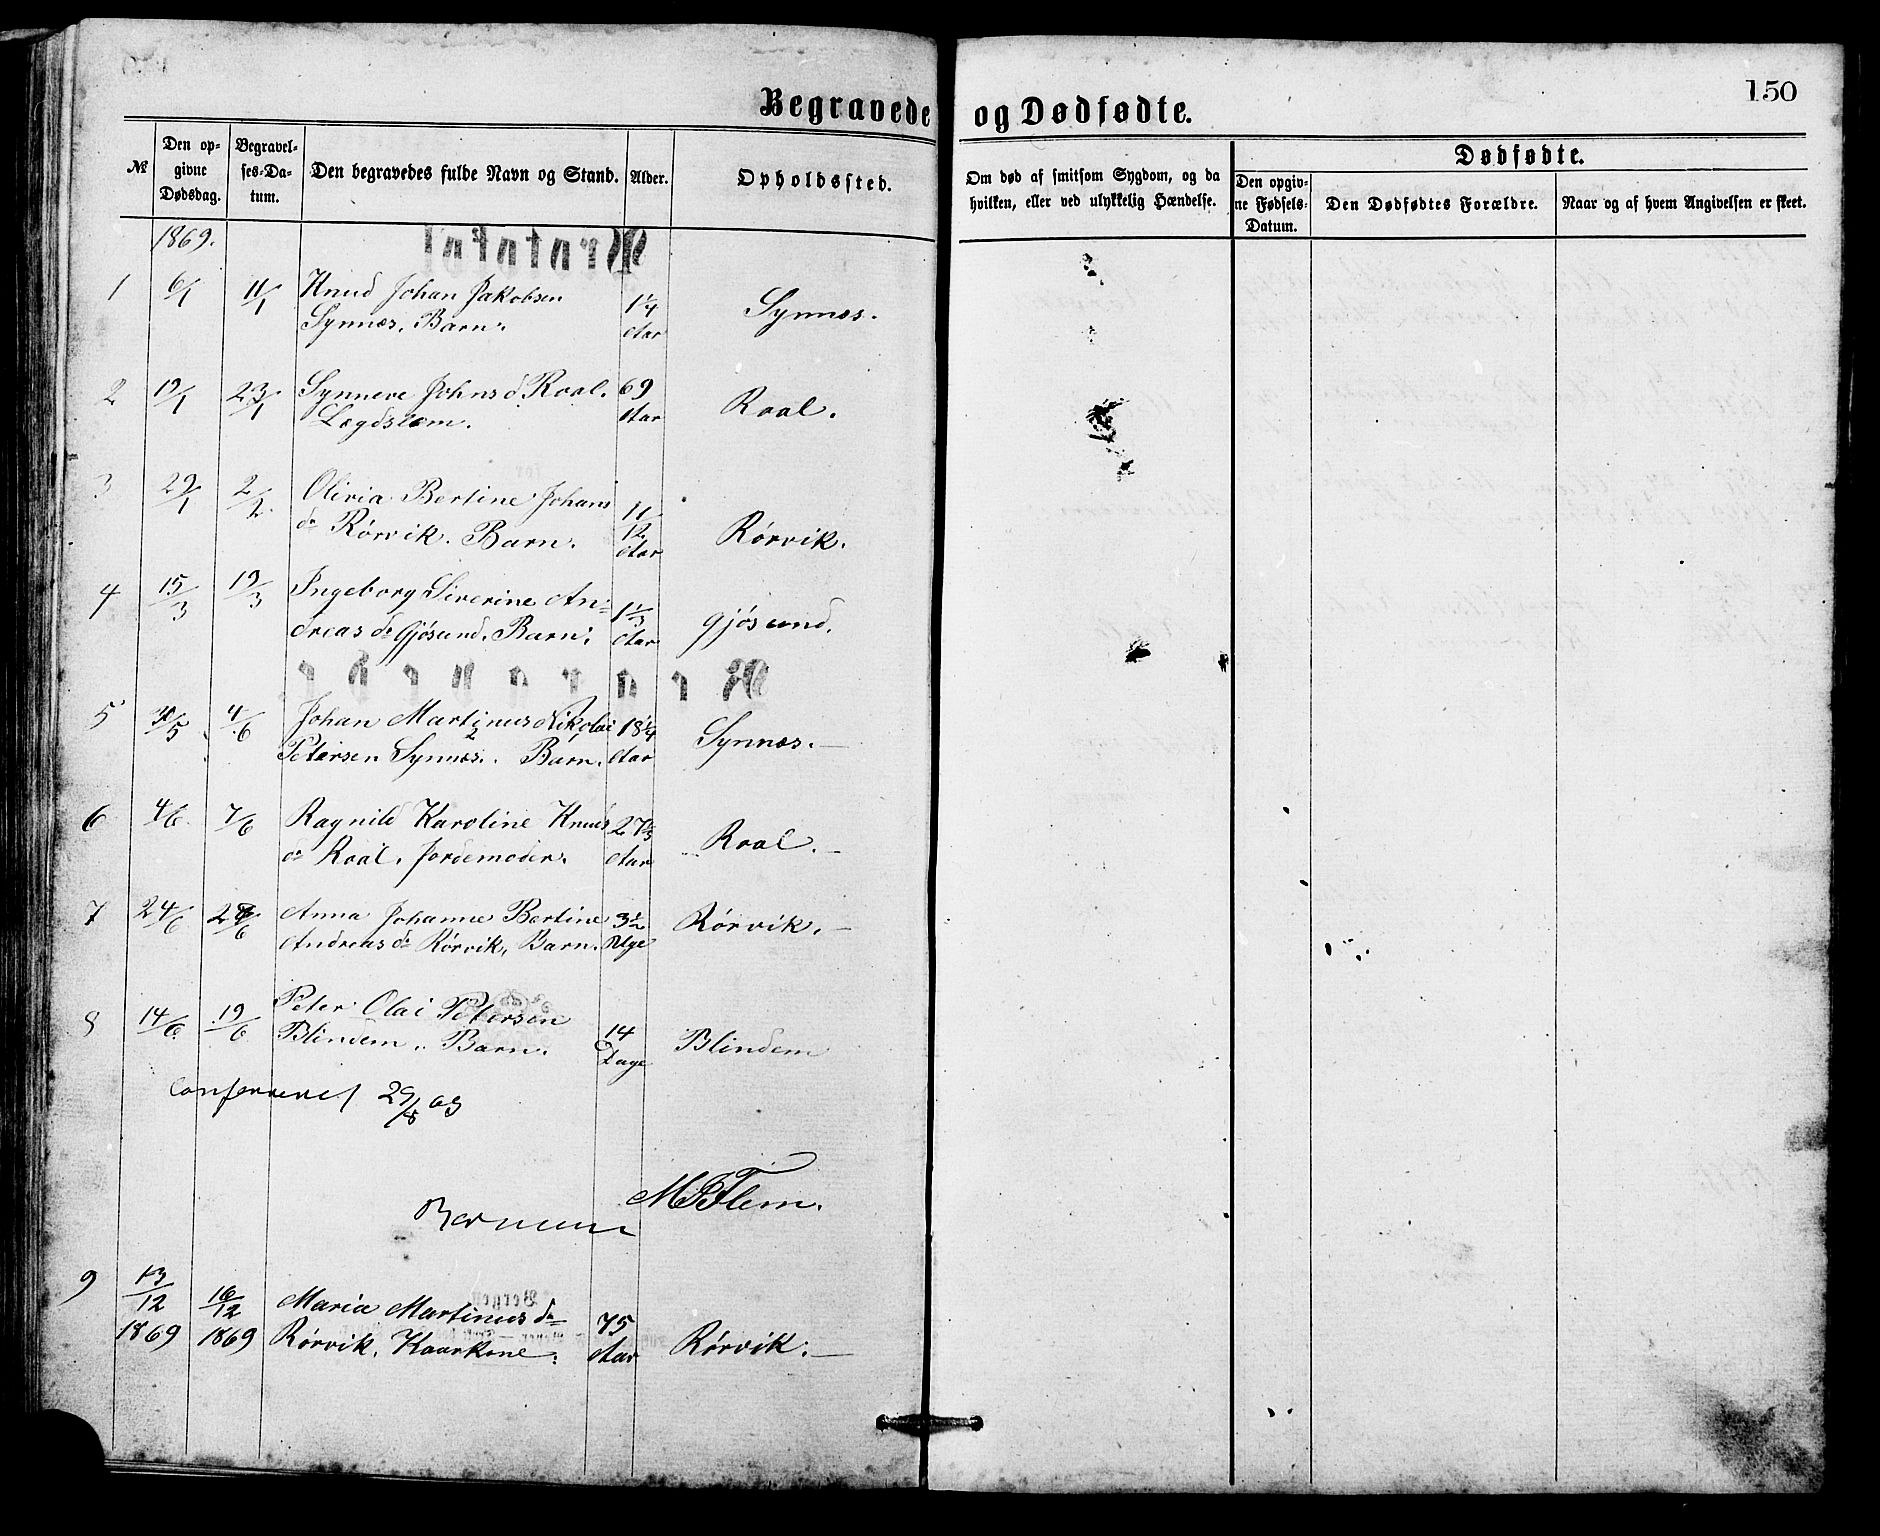 150
Begravede og Dødfødte.
№ Den opgivne Dødsdag. Begravelses-Datum. Den begravedes fulde Navn og Stand. Alder. Opholdssted. Om død af smitsom Sygdom, og da hvilken, eller ved ulykkelig Hændelse. Dødfødte. Den opgivne Fødsels-Datum. Den Dødfødtes Forældre. Naar og af hvem Angivelsen er skeet.
1869.
1 6/1 11/1 Knud Johan Jakobsen 1 1/4 Synnæs.
Synnæs. Barn. Aar
2 19/1 23/1 Synneve Johns d Roal. 69 Roal.
Lægdslem. Aar
3 29/1 2/2 Olivia Bertine Johans 11/12 Rørvik.
dr Rørvik. Barn. Aar
4 15/3 19/3 Ingeborg Siverine An- 1 1/3 Gjøsund.
dreas dr Gjøsund. Barn. Aar
5 31/5 4/6 Johan Martinus Nikolai 1 3/4 Synnæs.
Petersen Synnæs. Barn. Aar
6 4/6 7/6 Ragnild Karoline Knuds 27 Roal.
dr Roal. Jordemoder. Aar
7 24/6 /6 Anna Johanne Bertine 3 1/2 Rørvik.
Andreas dr Rørvik, Barn. Uge
8 14/6 19/6 Peter Olai Petersen 14 Blindem
Blindem. Barn. Dage
Confereret 29/8 69
M P Flem.
9 13/12 16/12 Maria Martinus dr 75 Rørvik.
1869 1869 Rørvik, Kaarkone. Aar